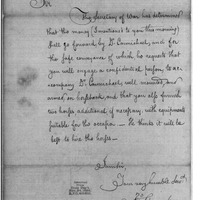 Sir
The Secretary of War has determined
that the money (I mentioned to you this morning)
shall go forward by Dr Carmichael, and for
the safe conveyance of which, he requests that
you will engage a confidential person, to ac-
company Dr Carmichael, well mounted and
armed on horseback, and that you also furnish
two horses additional if necessary with equipments
suitable for the occasion — He thinks it will be
best to hire the horses.
I am Sir,
Your very humble Serv.t